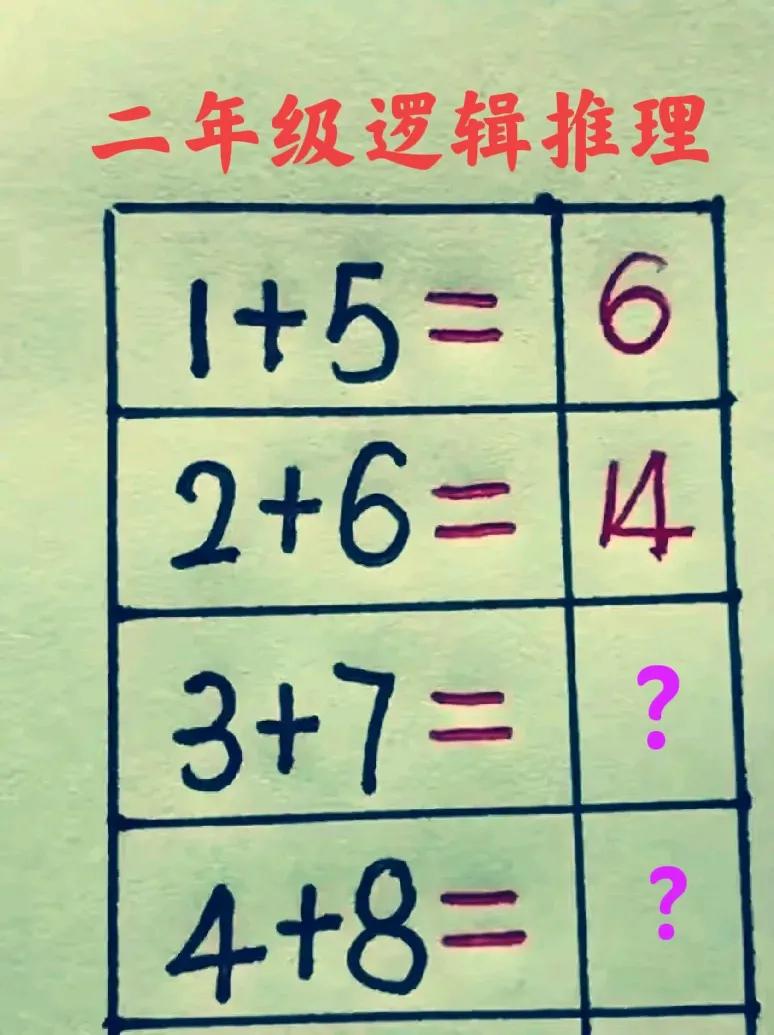 二年级逻辑推理
1+5= 6
2+6= 14
3+7= ?
4+8= ?